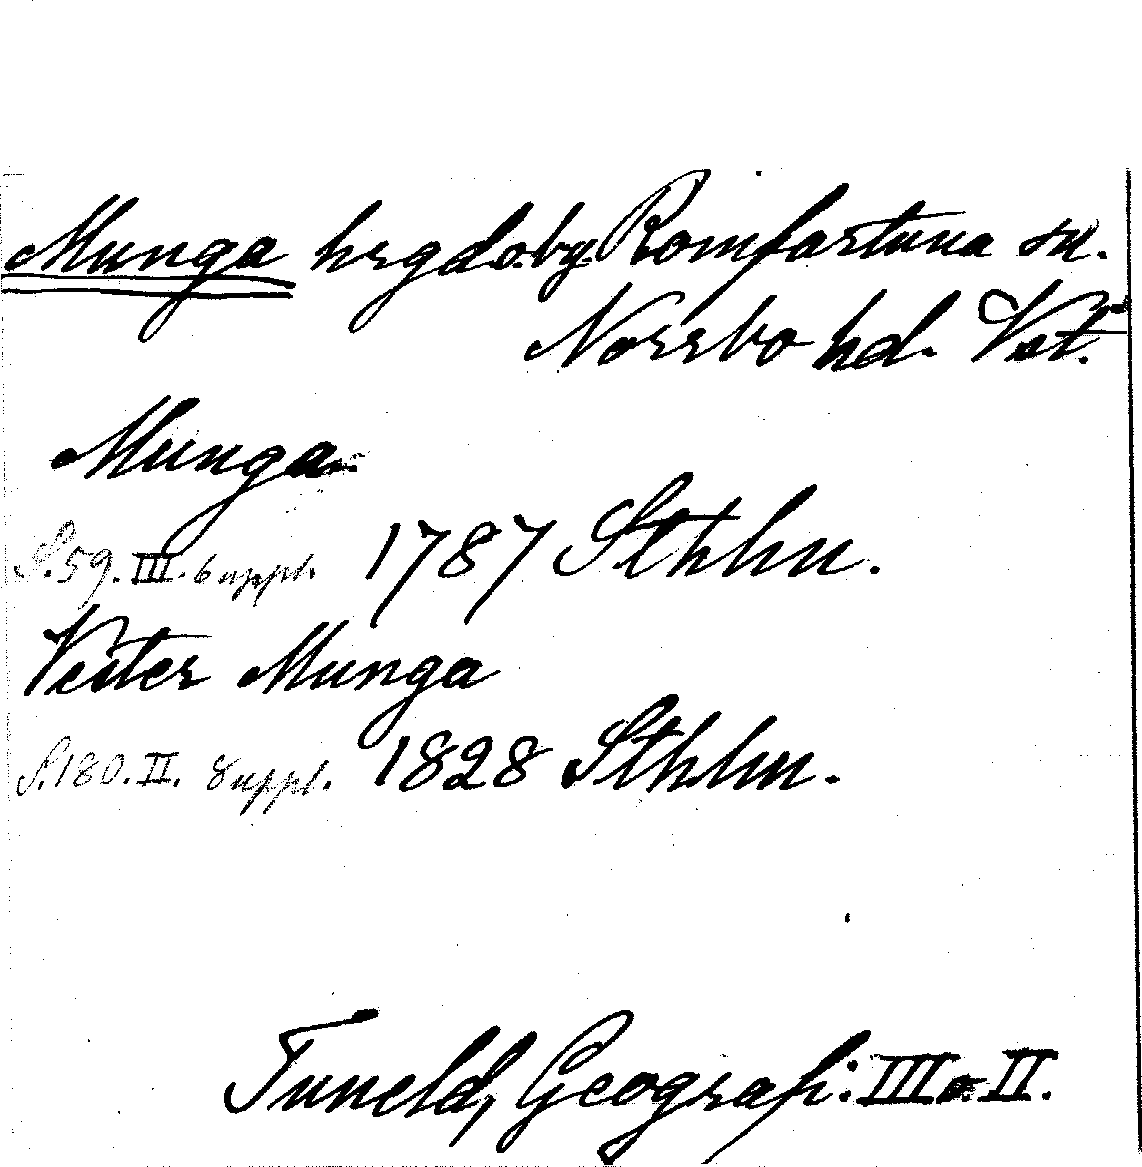 Munga hrgd o. by Romfartuna sn.
Norrbo hd. Vst.
Munga
S. 59. III. suppl. 1787 Sthlm.
Vester Munga
S. 180. II. Suppl. 1828 Sthlm.
Tuneld, Geografi: III o. II.